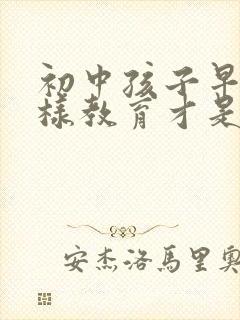 初中孩子早
样教育才是
安杰洛馬里奧